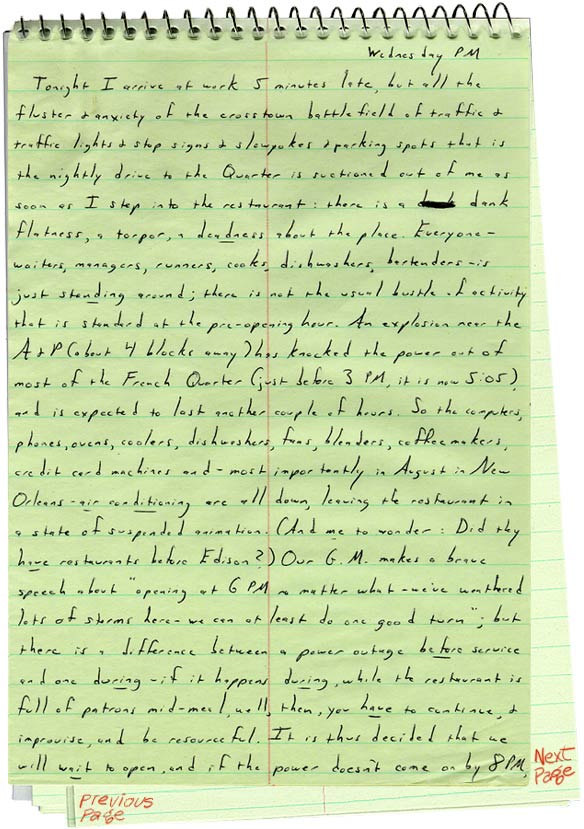 Wednesday PM
Tonight I arrive at work 5 minutes late, but all the
fluster & anxiety of the crosstown battlefield of traffic &
traffic lights & stop signs & slowpokes & parking spots that is
the nightly drive to the Quarter is suctioned out of me as
soon as I step into the restaurant: there is a dank
flatness, a torpor, a deadness about the place. Everyone -
waiters, managers, runners, cooks, dishwashers, bartenders - is
just standing around; there is not the usual bustle of activity
that is standard at the pre-opening hour. An explosion near the
A & P (about 4 blocks away) has knocked the power out of
most of the French Quarter (just before 3 PM, it is now 5:05)
and is expected to last another couple of hours. So the computers,
phones, ovens, coolers, dishwashers, fans, blenders, coffee makers,
credit card machines and - most importantly in August in New
Orleans - air conditioning are all down, leaving the restaurant in
a state of suspended animation. (And me to wonder: Did they
have restaurants before Edison?) Our G.M. makes a brave
speech about "opening at 6 PM no matter what - we've weathered
lots of storms here - we can at least do one good turn"; but
there is a difference between a power outage before service
and one during - if it happens during, while the restaurant is
full of patrons mid-meal, well, then, you have to continue, &
improvise, and be resourceful. It is thus decided that we
will wait to open, and if the power doesn't come on by 8 PM,
Next
Page
Previous
Page